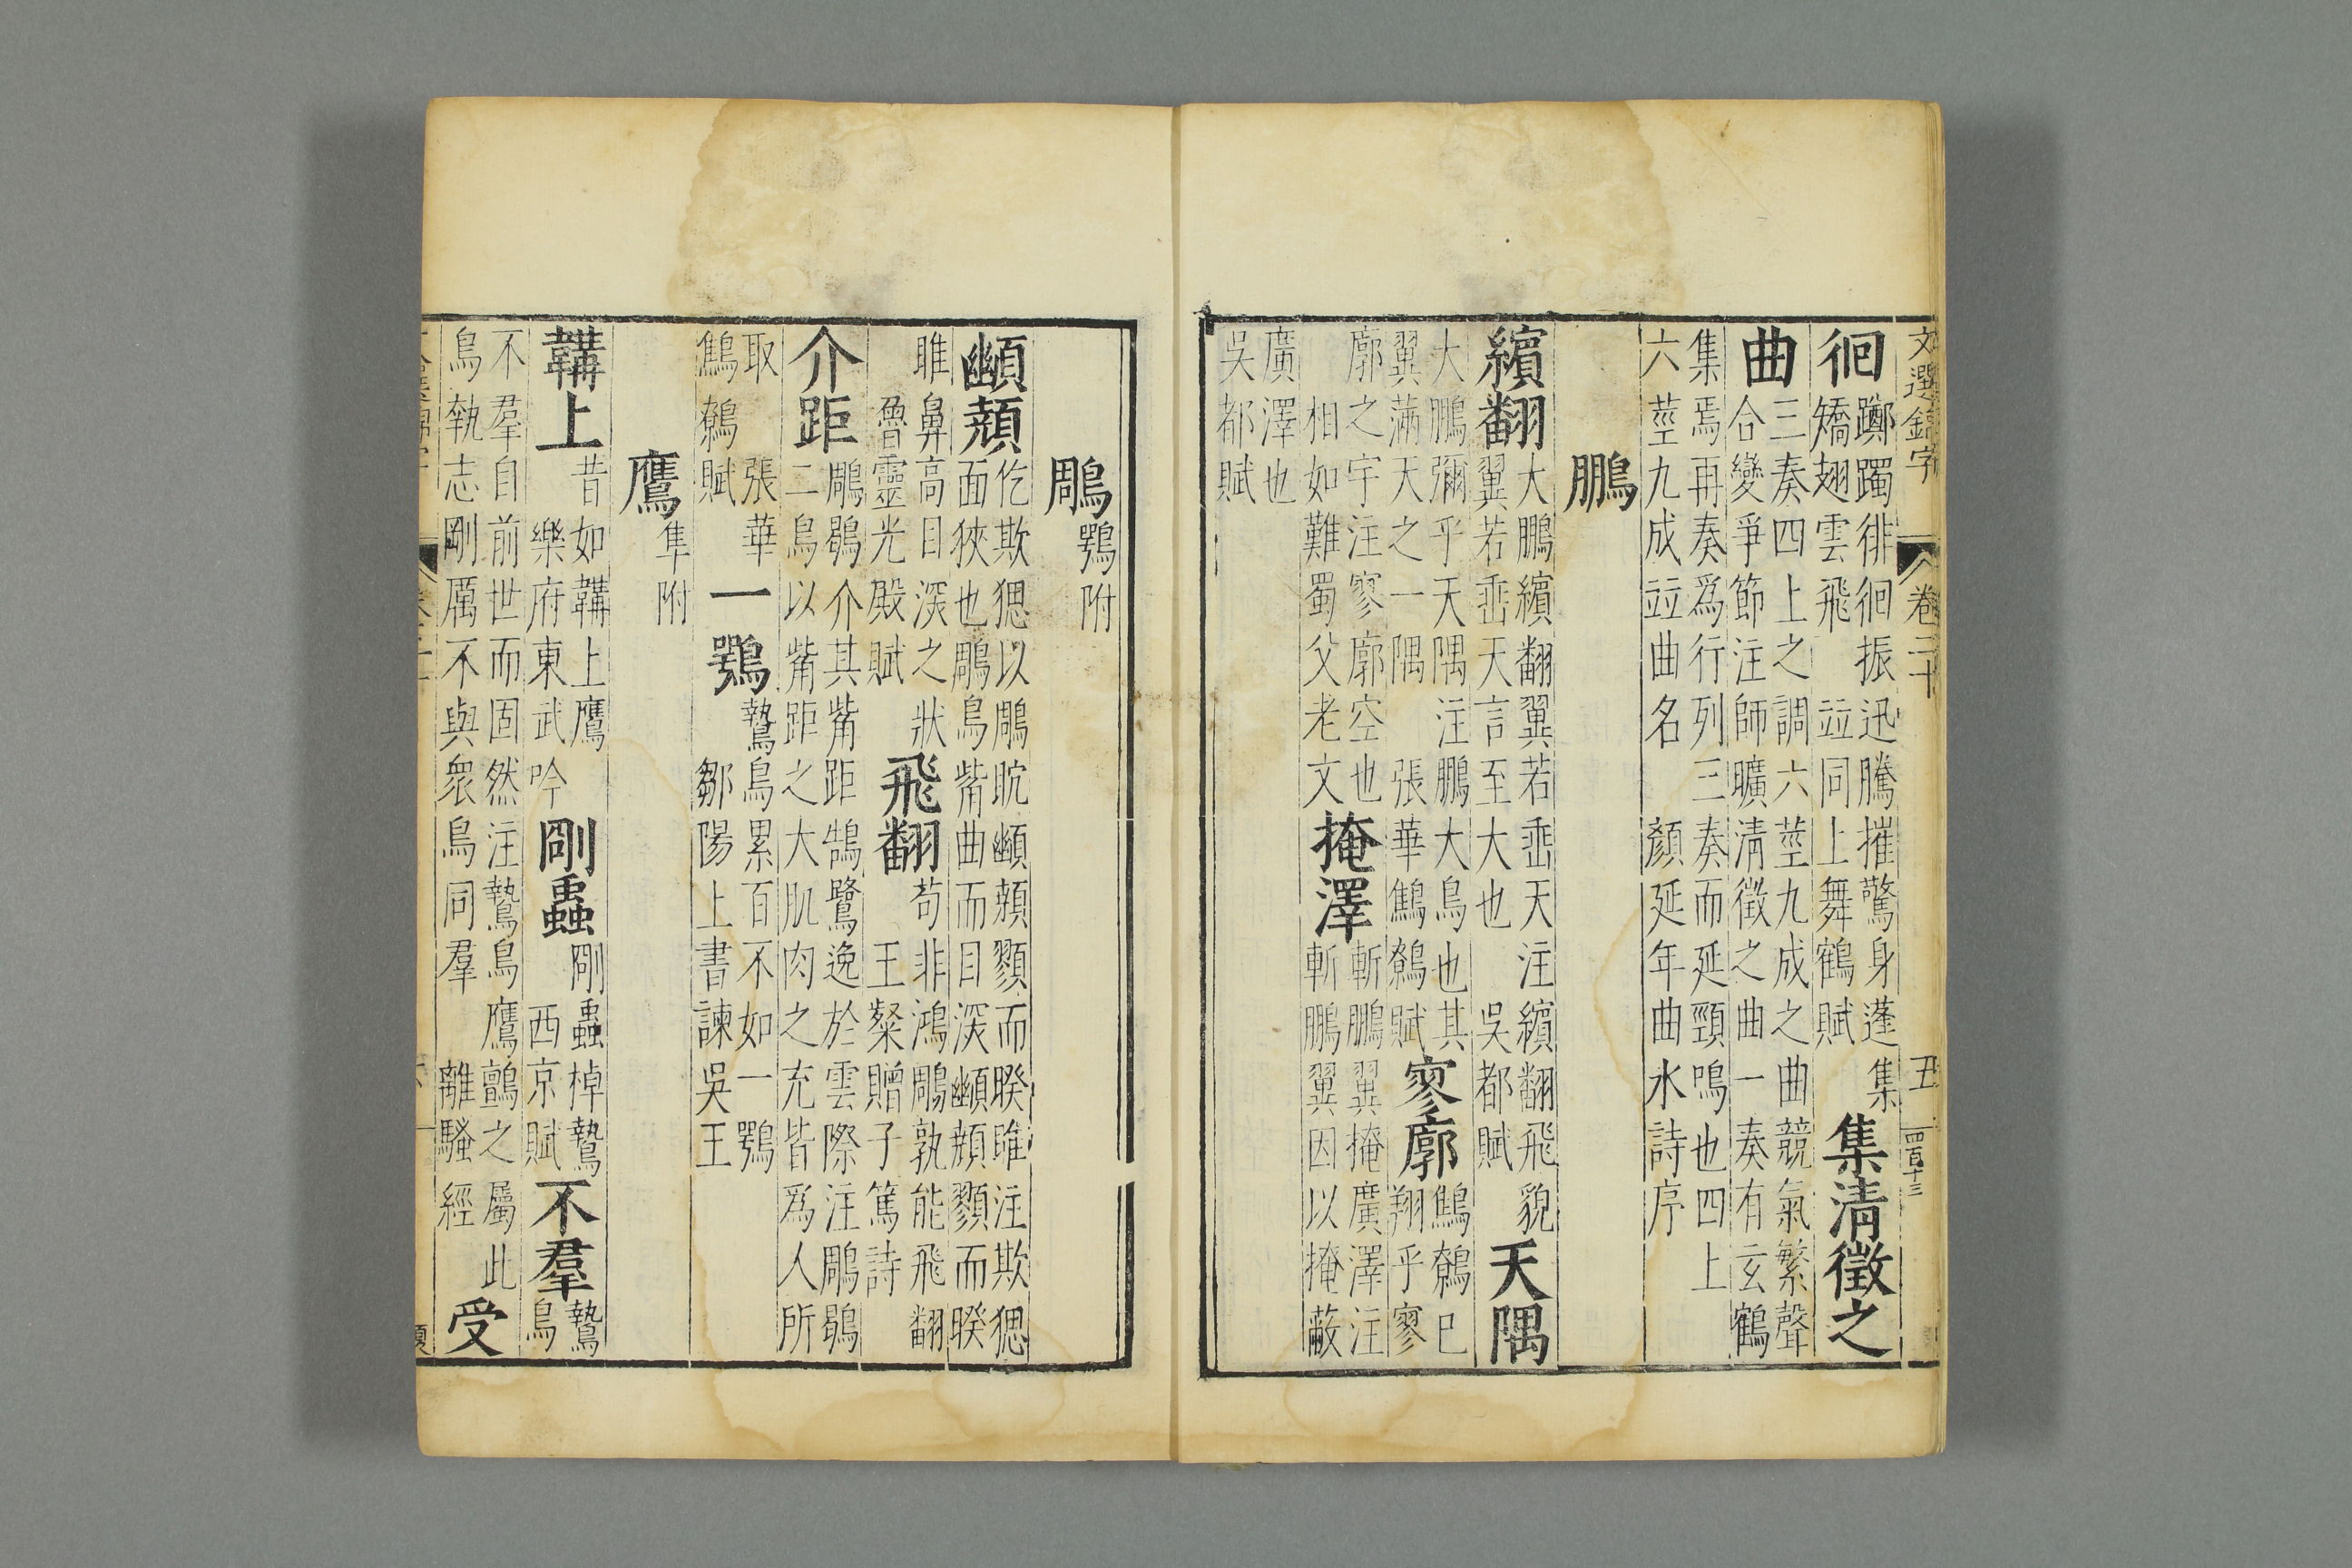 文選錦字 卷二十 丑 四百十三
徊 躑躅徘徊振迅騰摧驚身蓬集
矯翅雲飛 竝同上舞鶴賦 集清徵之
曲 三奏四上之調六莖九成之曲競氣繁聲
合變爭節注師曠清徵之曲一奏有玄鶴
集焉再奏爲行列三奏而延頸鳴也四上
六莖九成竝曲名 顏延年曲水詩序
鵬
繽翻 大鵬繽翻翼若垂天注繽翻飛貌
翼若垂天言至大也 吳都賦 天隅
大鵬彌乎天隅注鵬大鳥也其
翼滿天之一隅 張華鷦鷯賦 寥廓 鷦鷯巳
翔乎寥
廓之宇注寥廓空也
相如難蜀父老文 掩澤 斬鵬翼掩廣澤注
斬鵬翼因以掩蔽
廣澤也
吳都賦
鵰 鶚附
䫜顤 仡欺𤟧以鵰䀪䫜顤顟而睽睢注欺𤟧
面狹也鵰鳥觜曲而目深䫜顤顟而睽
睢鼻高目深之狀
魯靈光殿賦 飛翻 苟非鴻鵰孰能飛翻
王粲贈子篤詩
介距 鵰鶡介其觜距鵠鷺逸於雲際注鵰鶡
二鳥以觜距之大肌肉之充皆爲人所
取 張華
鷦鷯賦 一鶚 鷙鳥累百不如一鶚
鄒陽上書諫吳王
鷹 隼附
韝上 昔如韝上鷹
樂府東武吟 剛蟲 剛蟲棹鷙
西京賦 不羣 鷙
鳥
不羣自前世而固然注鷙鳥鷹鸇之屬此
鳥執志剛厲不與衆鳥同羣 離騷經 受